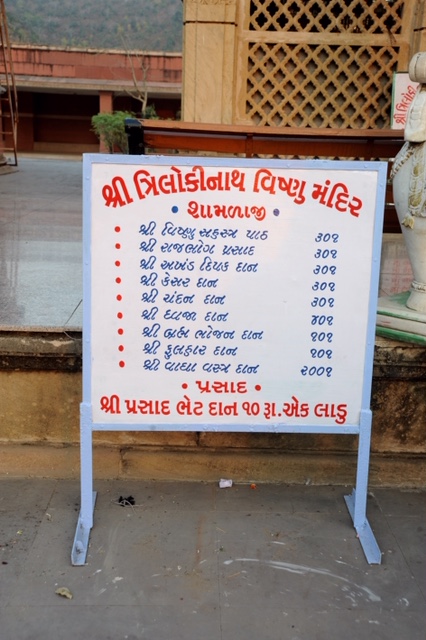 શ્રી ત્રિલોકીનાથ વિષ્ણુ મંદિર
• શામળાજી •
• શ્રી વિષ્ણુ સહસ્ત્ર પાઠ ૩૦૧
• શ્રી રાજભોગ પ્રસાદ ૩૦૧
• શ્રી અખંડ દિપક દાન ૩૦૧
• શ્રી કેસર દાન ૩૦૧
• શ્રી ચંદન દાન ૩૦૧
• શ્રી ધ્વજા દાન ૪૦૧
• શ્રી બ્રહ્મ ભોજન દાન ૧૦૧
• શ્રી ફુલહાર દાન ૧૦૧
• શ્રી વાઘા વસ્ત્ર દાન ૨૦૦૧
• પ્રસાદ •
શ્રી પ્રસાદ ભેટ દાન ૧૦ રૂા. એક લાડુ
શ્રી ત્રિલોકી